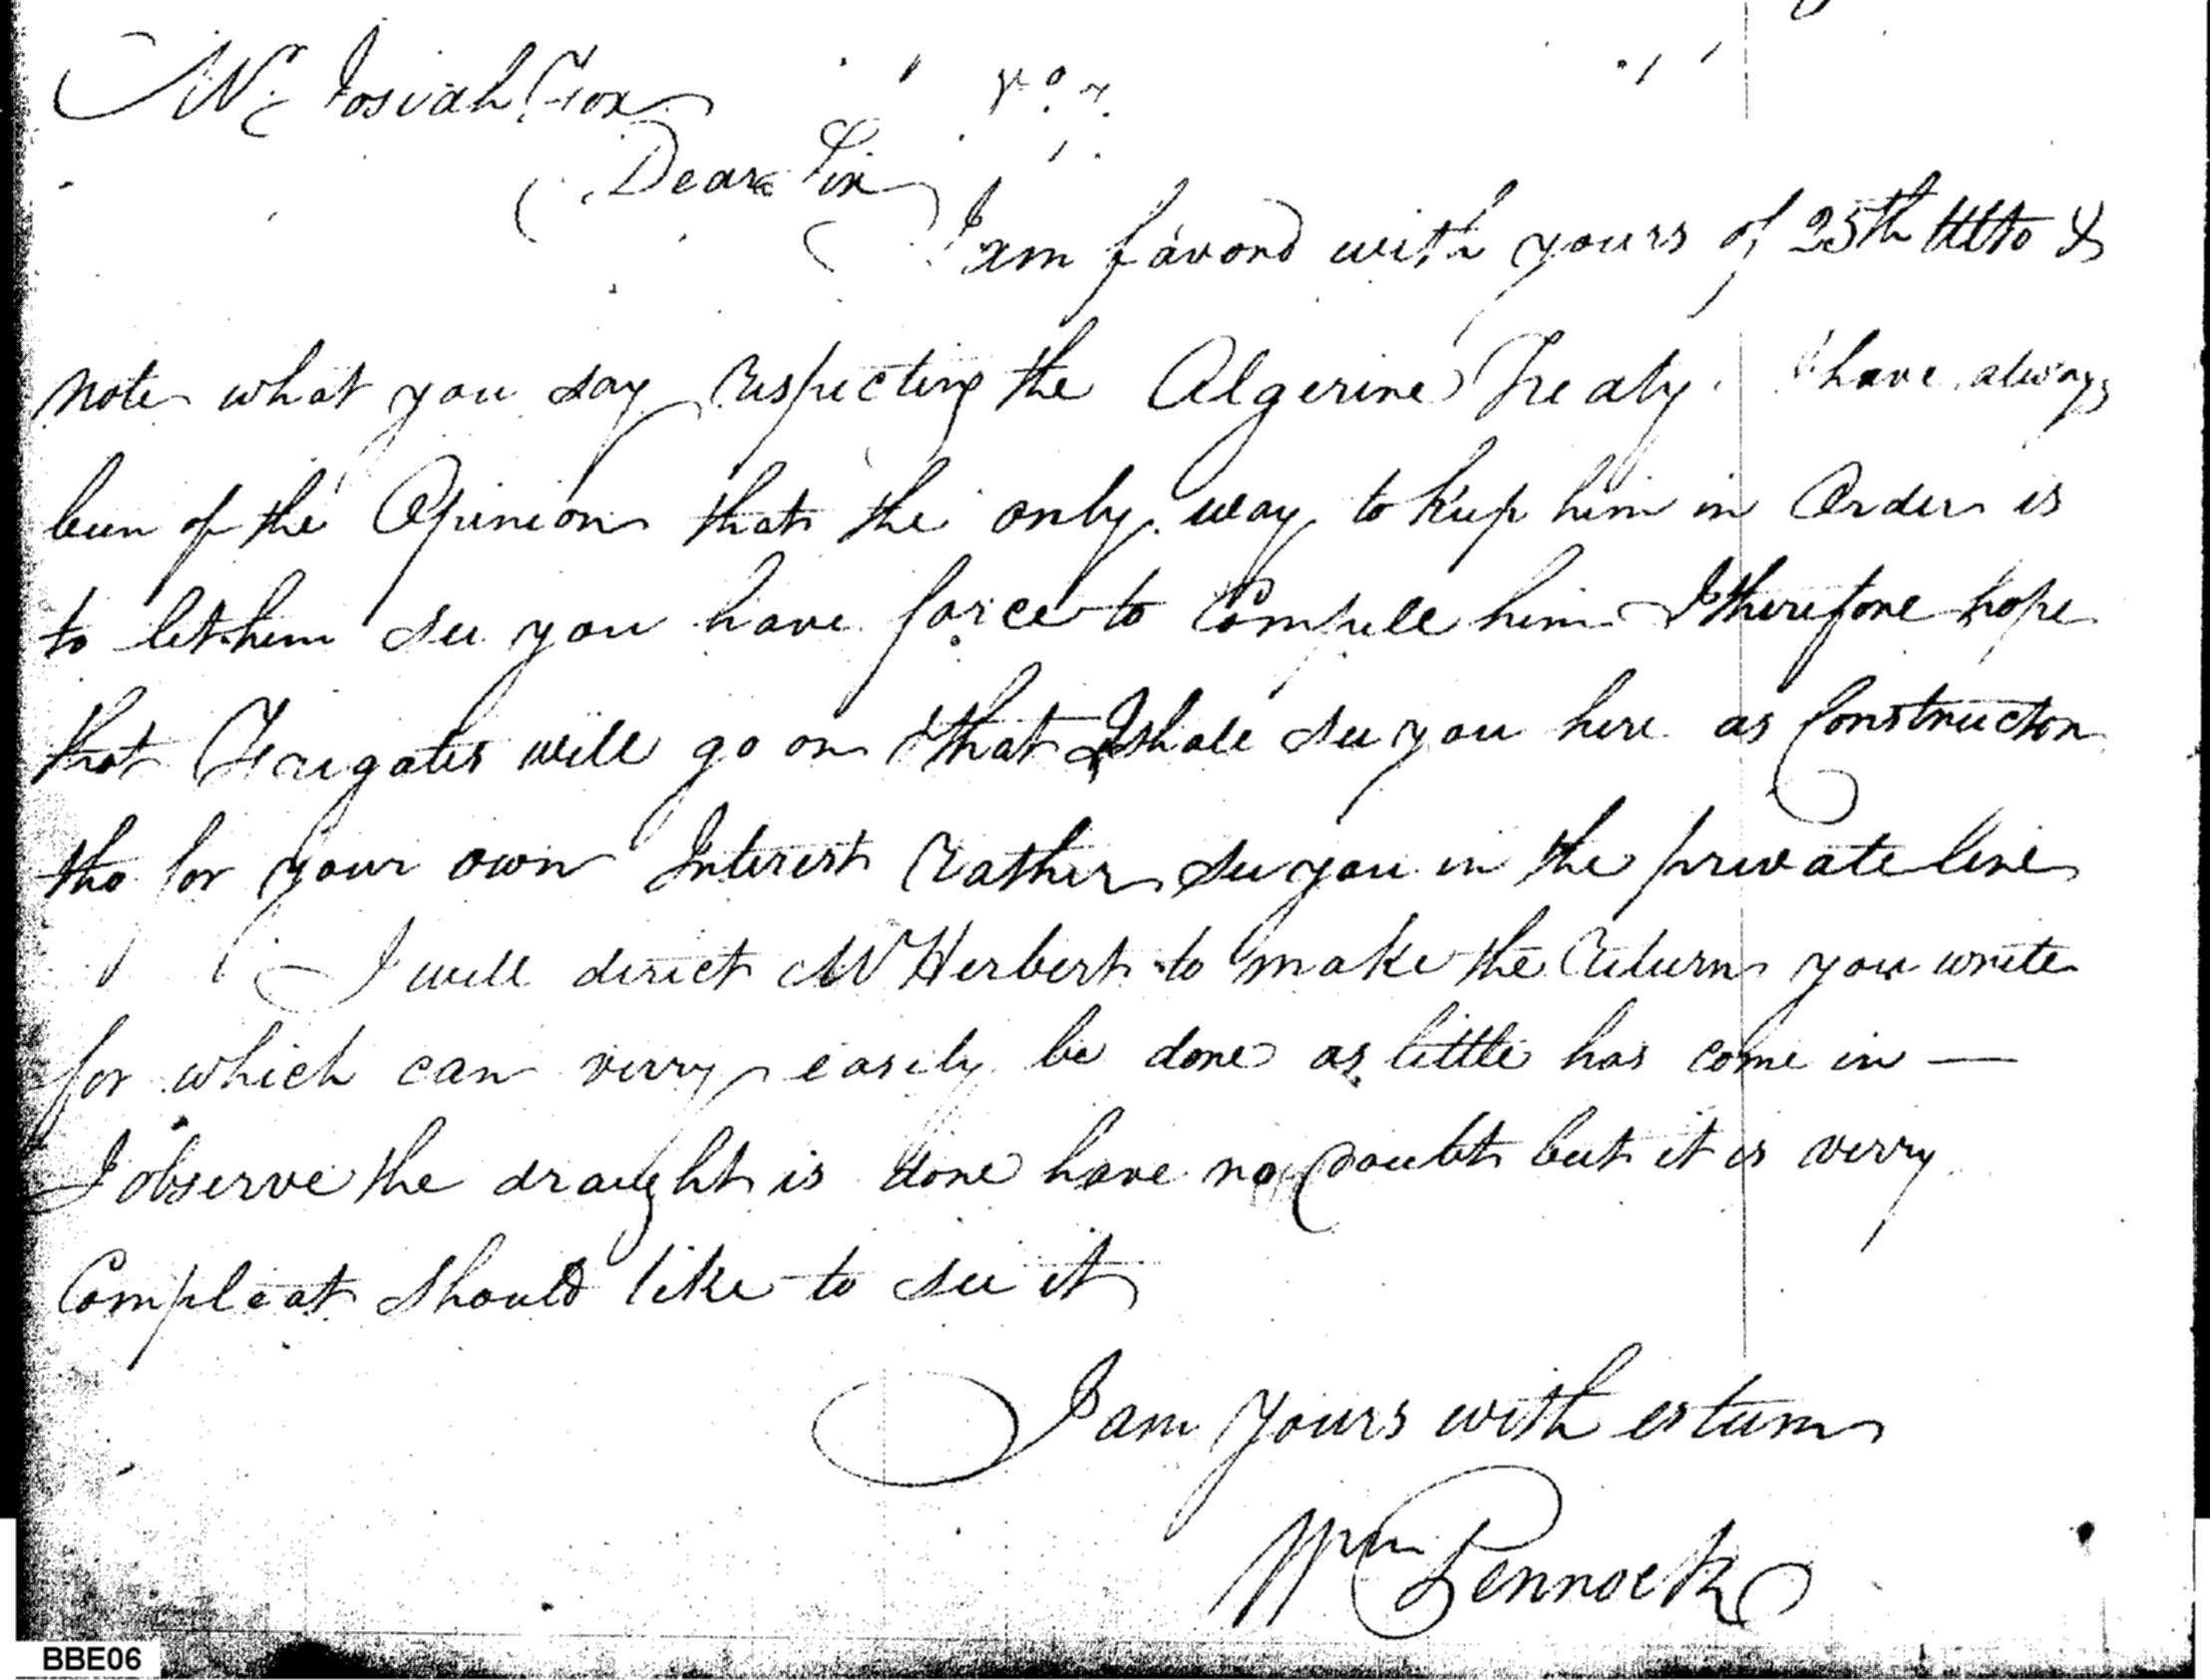 Mr Josiah Fox
Dear Sir
I am favord with yours of 25th Ulto &
note what you say respecting the Algerine Treaty. I have always
been of the Opinion that the only way to keep him in Order is
to let him see you have force to Compell him I therefore hope
that Frigates will go on & that I shall see you here as Constructor
tho for your own Interest rather see you in the private line
I will direct Mr Herbert to make the return you write
for which can verry easily be done as little has come in —
I observe the draught is done have no doubt but it is verry
Compleat should like to see it
I am yours with esteem
Wm Pennock
BBE06